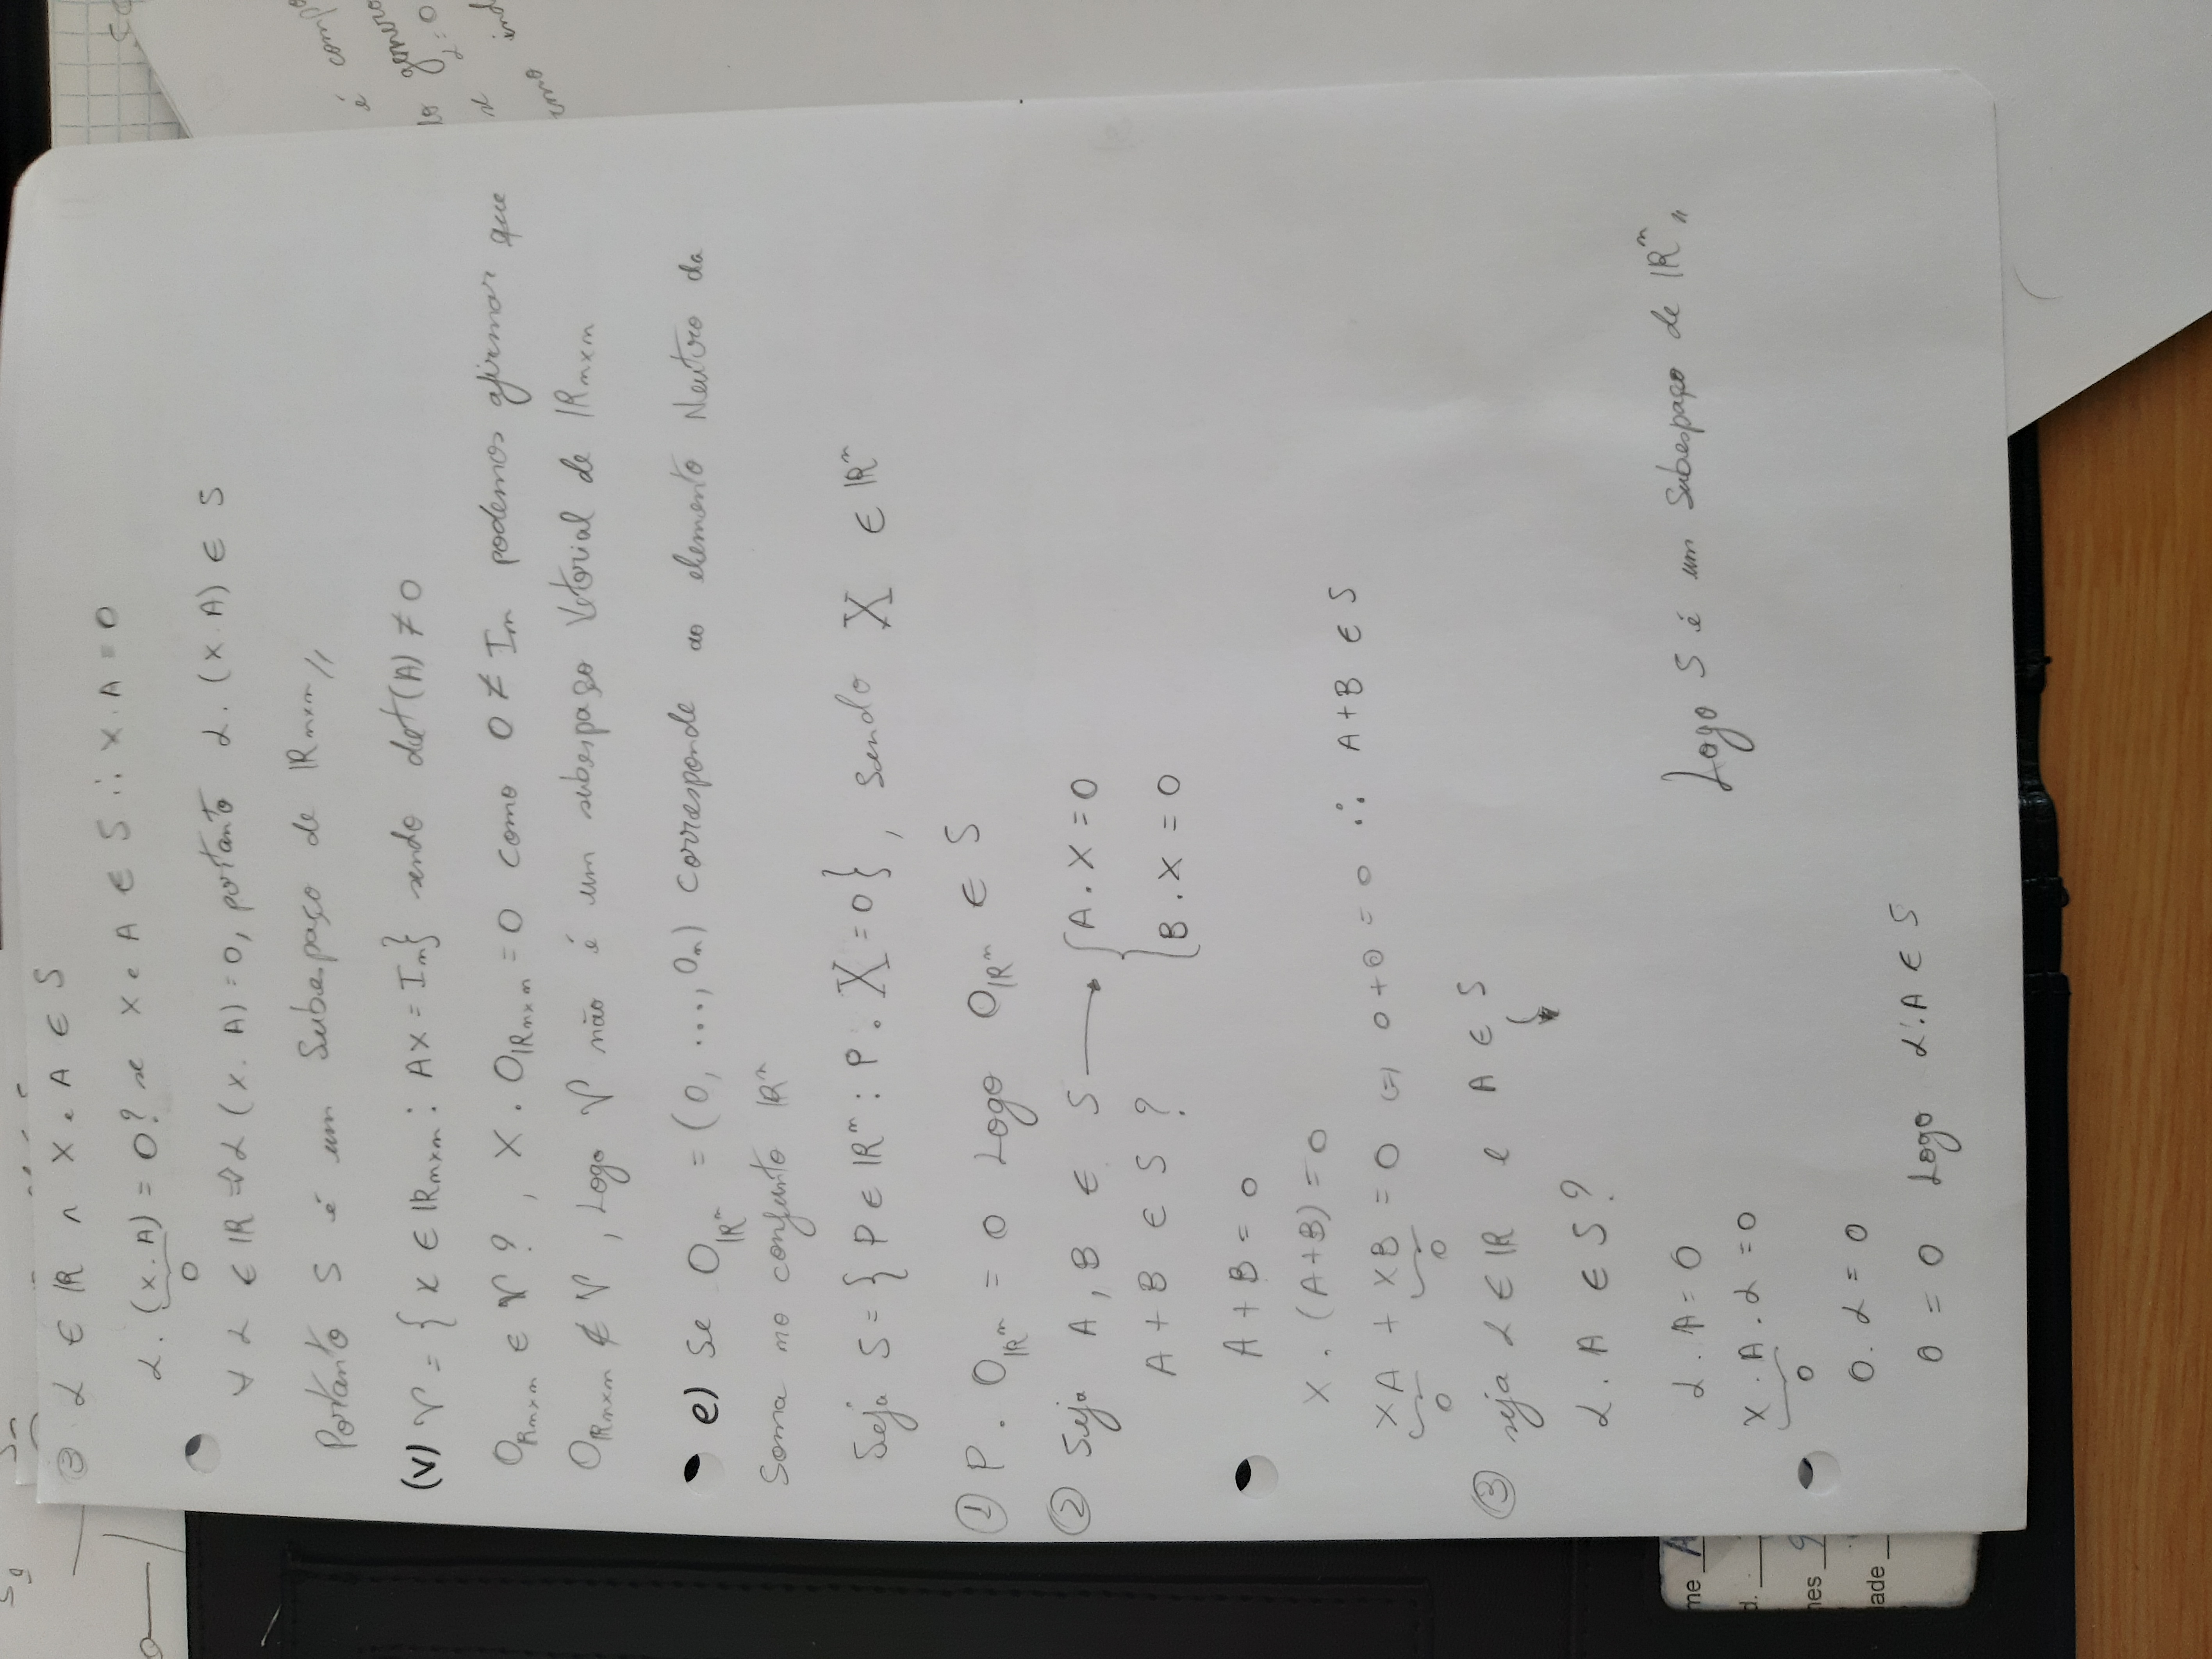 ③ α ∈ ℝ ∧ X e A ∈ S
α . (X . A) = 0? se X e A ∈ S ∴ X . A = 0
0
∀ α ∈ ℝ ⇒ α (X . A) = 0, portanto α . (X . A) ∈ S
Portanto S é um Subespaço de ℝn×n //
(V) V = { X ∈ ℝn×n : AX = In } sendo det(A) ≠ 0
Oℝn×n ∈ V ? , X . Oℝn×n = 0 como 0 ≠ In podemos afirmar que
Oℝn×n ∉ V , Logo V não é um subespaço Vetorial de ℝn×n
e) Se Oℝⁿ = (0, ..., 0n) corresponde ao elemento Neutro da
Soma no conjunto ℝⁿ
Seja S = { P ∈ ℝⁿ : P . X = 0 } , Sendo X ∈ ℝⁿ
① P . Oℝⁿ = 0 Logo Oℝⁿ ∈ S
② Seja A , B ∈ S → { A . X = 0
B . X = 0
A + B ∈ S ?
A + B = 0
X . (A+B) = 0
XA + XB = 0 ⇔ 0 + 0 = 0 ∴ A+B ∈ S
0 0
③ seja α ∈ ℝ e A ∈ S
α . A ∈ S ?
α . A = 0
X . A . α = 0
0
0 . α = 0
0 = 0 Logo α . A ∈ S
Logo S é um Subespaço de ℝⁿ //
é compo
genero
α = 0
se
ind
me A
d.
nes 9
ade